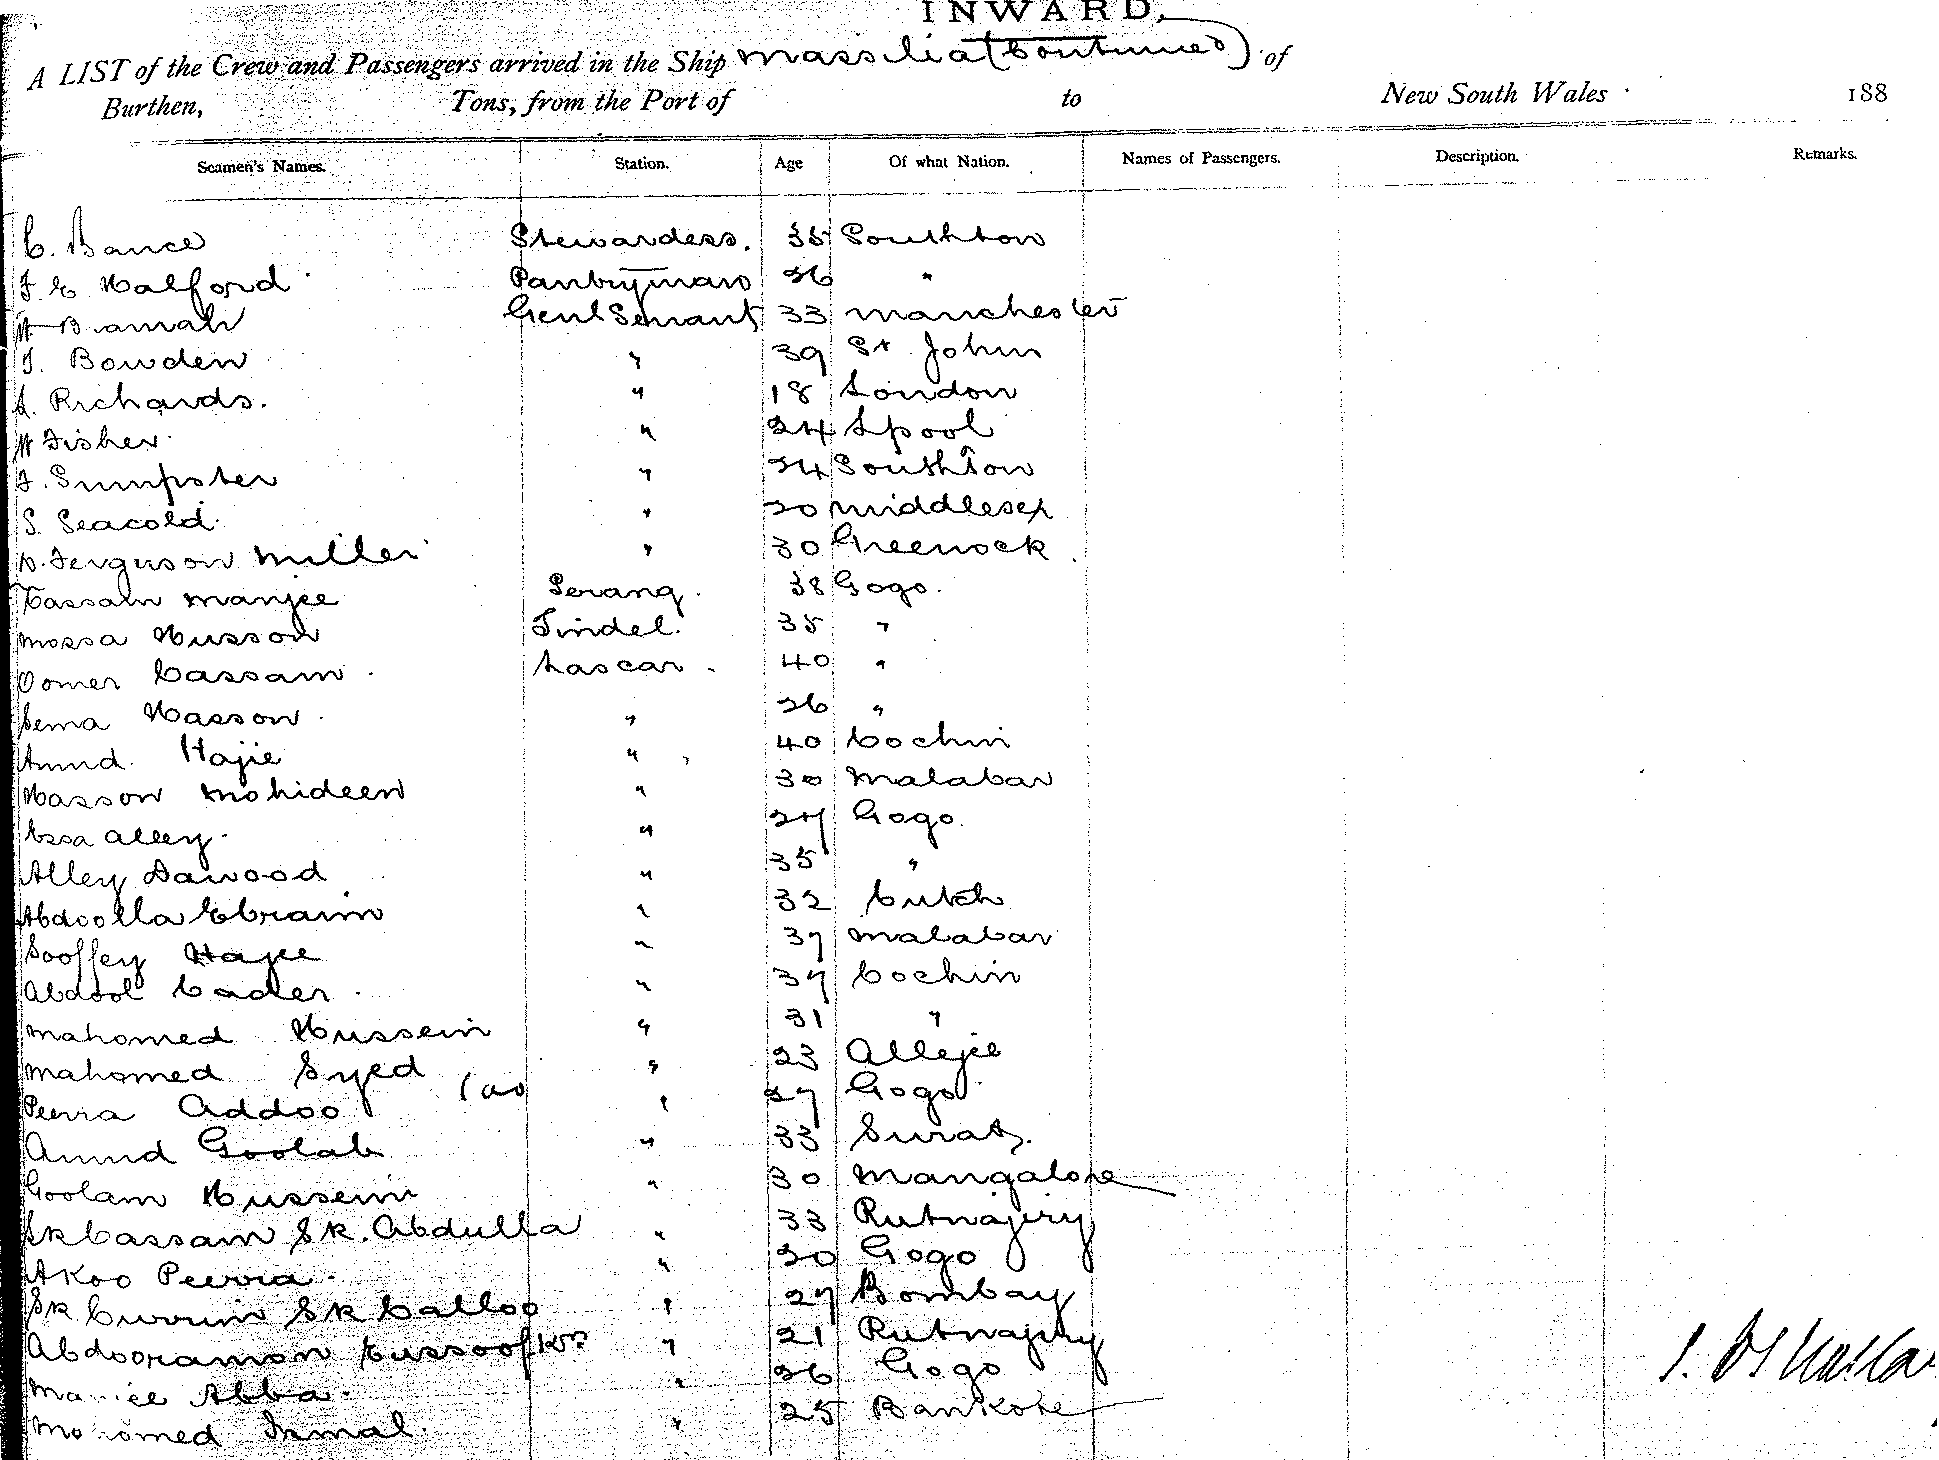 INWARD.
A LIST of the Crew and Passengers arrived in the Ship Massilia (Continued) of
Burthen, Tons, from the Port of to New South Wales 188
Seamen's Names. Station. Age Of what Nation. Names of Passengers. Description. Remarks.
C. Bance Stewardess. 35 Southton
F. E Halford Pantryman 26 "
W Bamah Genl Servant 33 Manchester
J. Bowden " 39 St Johns
A. Richards. " 18 London
W Fisher " 24 Lpool
F. Sumpster " 24 Southton
S. Seacold " 20 Middlesex
D. Ferguson Miller " 30 Greenock
Cassam Manjee Serang 38 Gogo.
Mossa Husson Tindel. 35 "
Oomer Cassam. Lascar. 40 "
Jema Hasson " 26 "
Amud. Hajie " 40 Cochin
Hasson Mohideen " 30 Malabar
Essa Alley. " 27 Gogo.
Alley Dawood " 35 "
Abdoolla Ebraim " 32 Cutch
Sooffey Hajee " 37 Malabar
Abdool Cader. " 37 Cochin
Mahomed Hussein " 31 "
Mahomed Syed " 23 Allejee
Peerra Addoo " 27 Gogo
Amud Goolab " 33 Surat.
Goolam Hussein " 30 Mangalore
Sk Cassam Sk. Abdulla " 33 Rutnajiry
Akoo Peerra. " 20 Gogo
Sk Currim Sk Calloo " 27 Bombay
Abdooramon Eussoof Kn " 21 Rutnajiry
Abba. " 26 Gogo
Mohomed Ismal. " 25 Bankote